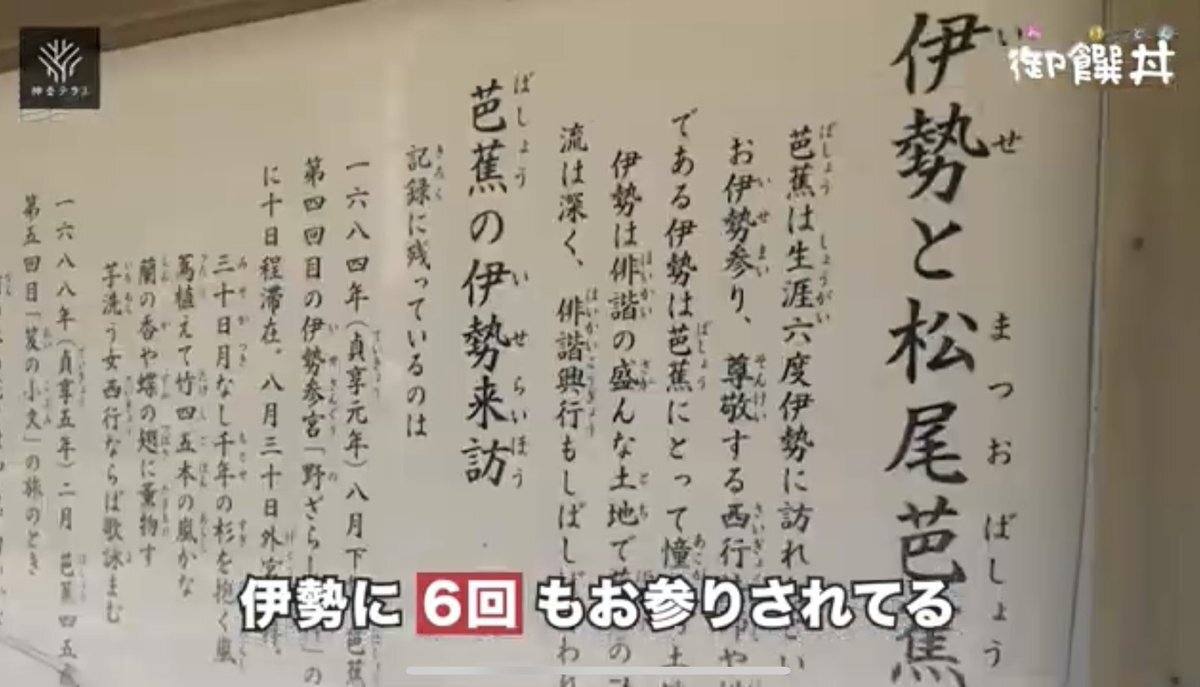 伊勢と松尾芭蕉
いせ まつおばしょう
芭蕉は生涯六度伊勢に訪れ
お伊勢参り、尊敬する西行
である伊勢は芭蕉にとって憧
伊勢は俳諧の盛んな土地で
流は深く、俳諧興行もしば
芭蕉の伊勢来訪
ばしょう いせらいほう
記録に残っているのは
一六八四年(貞享元年)八月下
第四回目の伊勢参宮「野ざらし
に十日程滞在。八月三十日外宮
三十日月なし千年の杉を抱く嵐
蔦植えて竹四五本の嵐かな
蘭の香や蝶の翅に薫物す
芋洗う女西行ならば歌詠まむ
一六八八年(貞享五年)二月 芭蕉四五歳
第五回目「笈の小文」の旅のとき
神楽テラス
御饌丼
みけどん
伊勢に6回もお参りされてる